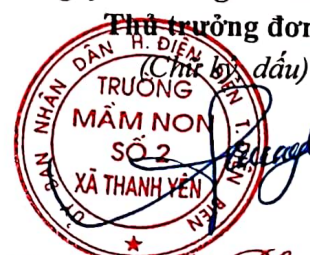 Thủ trưởng đơn
(Chữ ký, dấu)
ỦY BAN NHÂN DÂN H. ĐIỆN BIÊN T. ĐIỆN BIÊN
TRƯỜNG
MẦM NON
SỐ 2
XÃ THANH YÊN